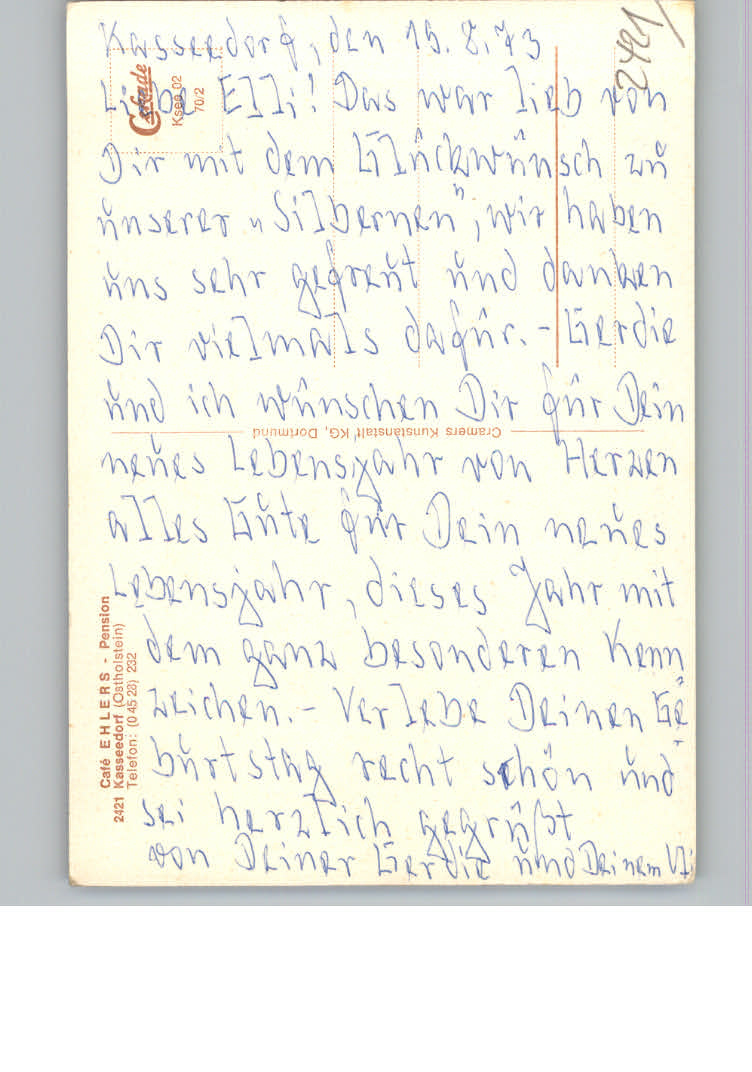 Kasseedorf, den 15. 8. 73
2421
Cekade
Ksee 02
70/2
Liebe Elli! Das war lieb von
Dir mit dem Glückwunsch zu
unserer "Silbernen", wir haben
uns sehr gefreut und danken
Dir vielmals dafür. - Gerdie
und ich wünschen Dir für Dein
Cramers Kunstanstalt KG, Dortmund
neues Lebensjahr von Herzen
alles Gute für Dein neues
Lebensjahr, dieses Jahr mit
dem ganz besonderen Kenn
zeichen. - Verlebe Deinen Ge
burtstag recht schön und
sei herzlich gegrüßt
von Deiner Gerdie und Deinem
Café EHLERS - Pension
2421 Kasseedorf (Ostholstein)
Telefon: (0 45 28) 232